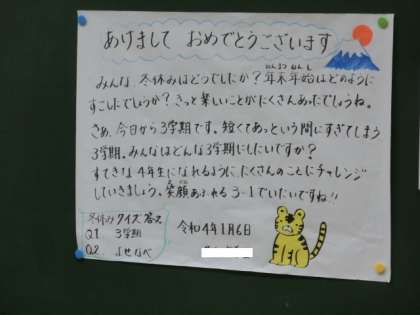 あけまして おめでとうございます
みんな、冬休みはどうでしたか？年末年始はどのように
すごしたでしょうか？きっと楽しいことがたくさんあったでしょうね。
さあ、今日から3学期です。短くてあっという間にすぎてしまう
3学期。みんなはどんな3学期にしたいですか？
すてきな4年生になれるように、たくさんのことにチャレンジ
していきましょう。笑顔あふれる3-1でいたいですね!!
冬休みクイズ答え
Q1. 3学期
Q2. よせなべ
令和4年1月6日